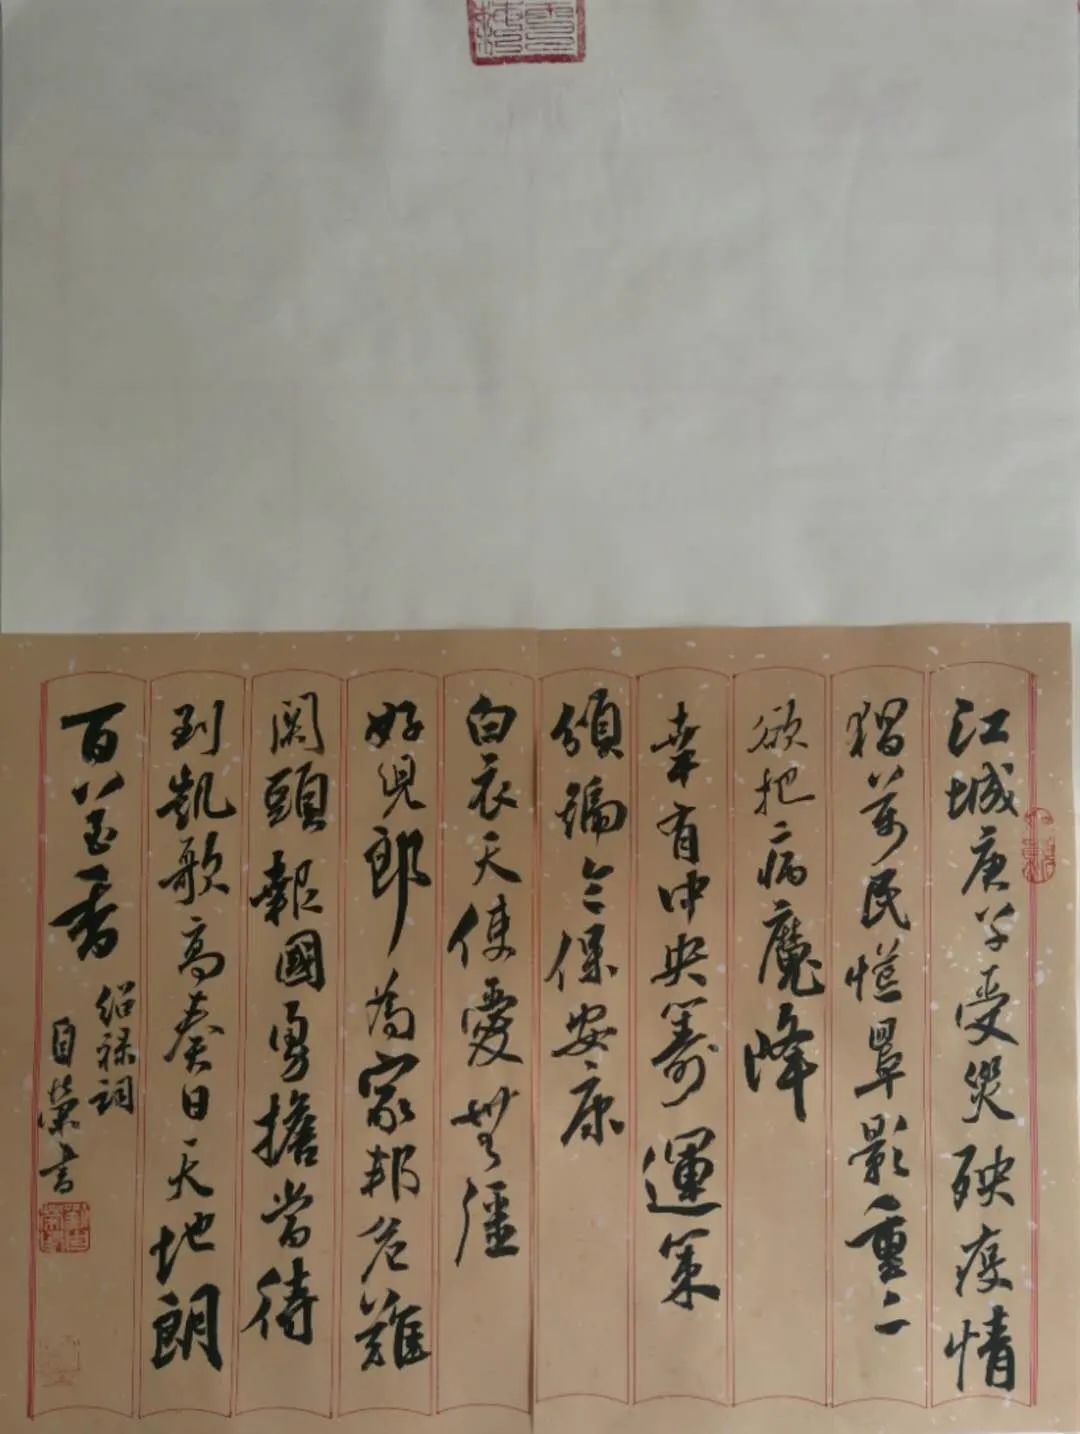 江城庚子受災殃疫情
猖萬民慌罩影重二
欲把病魔降
幸有中央籌運策
頒錦念保安康
白衣天使愛無疆
好兒郎為家邦危難
關頭報國勇擔當待
到凱歌高奏日天地朗
百花香
紹祿詞
自榮書